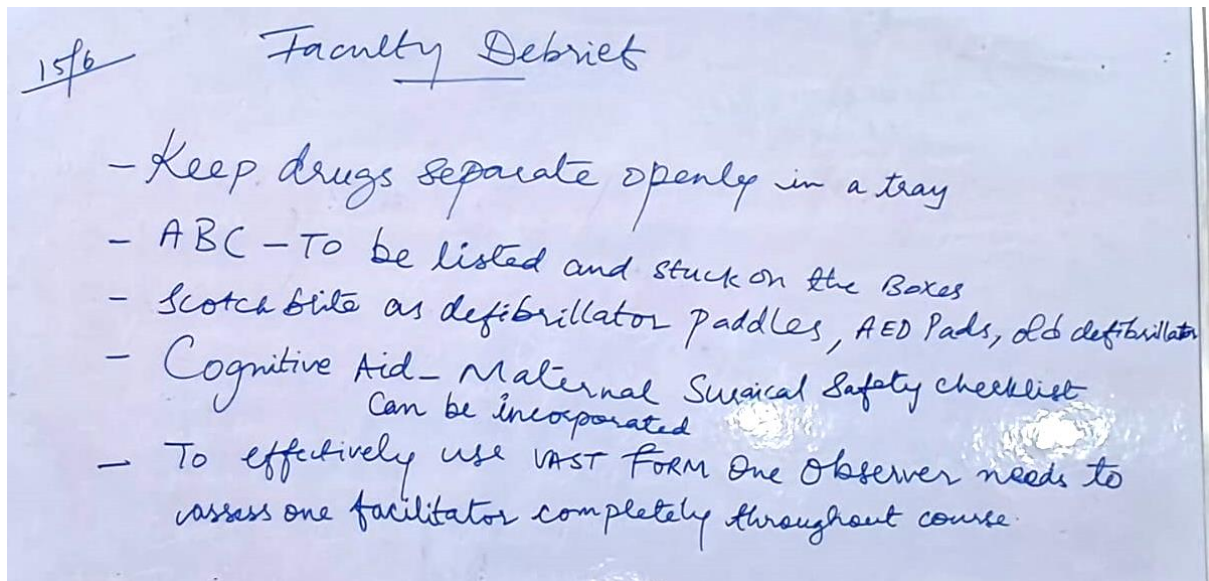 15/6
Faculty Debrief
- Keep drugs separate openly in a tray
- ABC - To be listed and stuck on the Boxes
- Scotch brite as defibrillator paddles, AED Pads, old defibrillator
- Cognitive Aid - Maternal Surgical Safety checklist
can be incorporated
- To effectively use VAST FORM One Observer needs to
assess one facilitator completely throughout course.